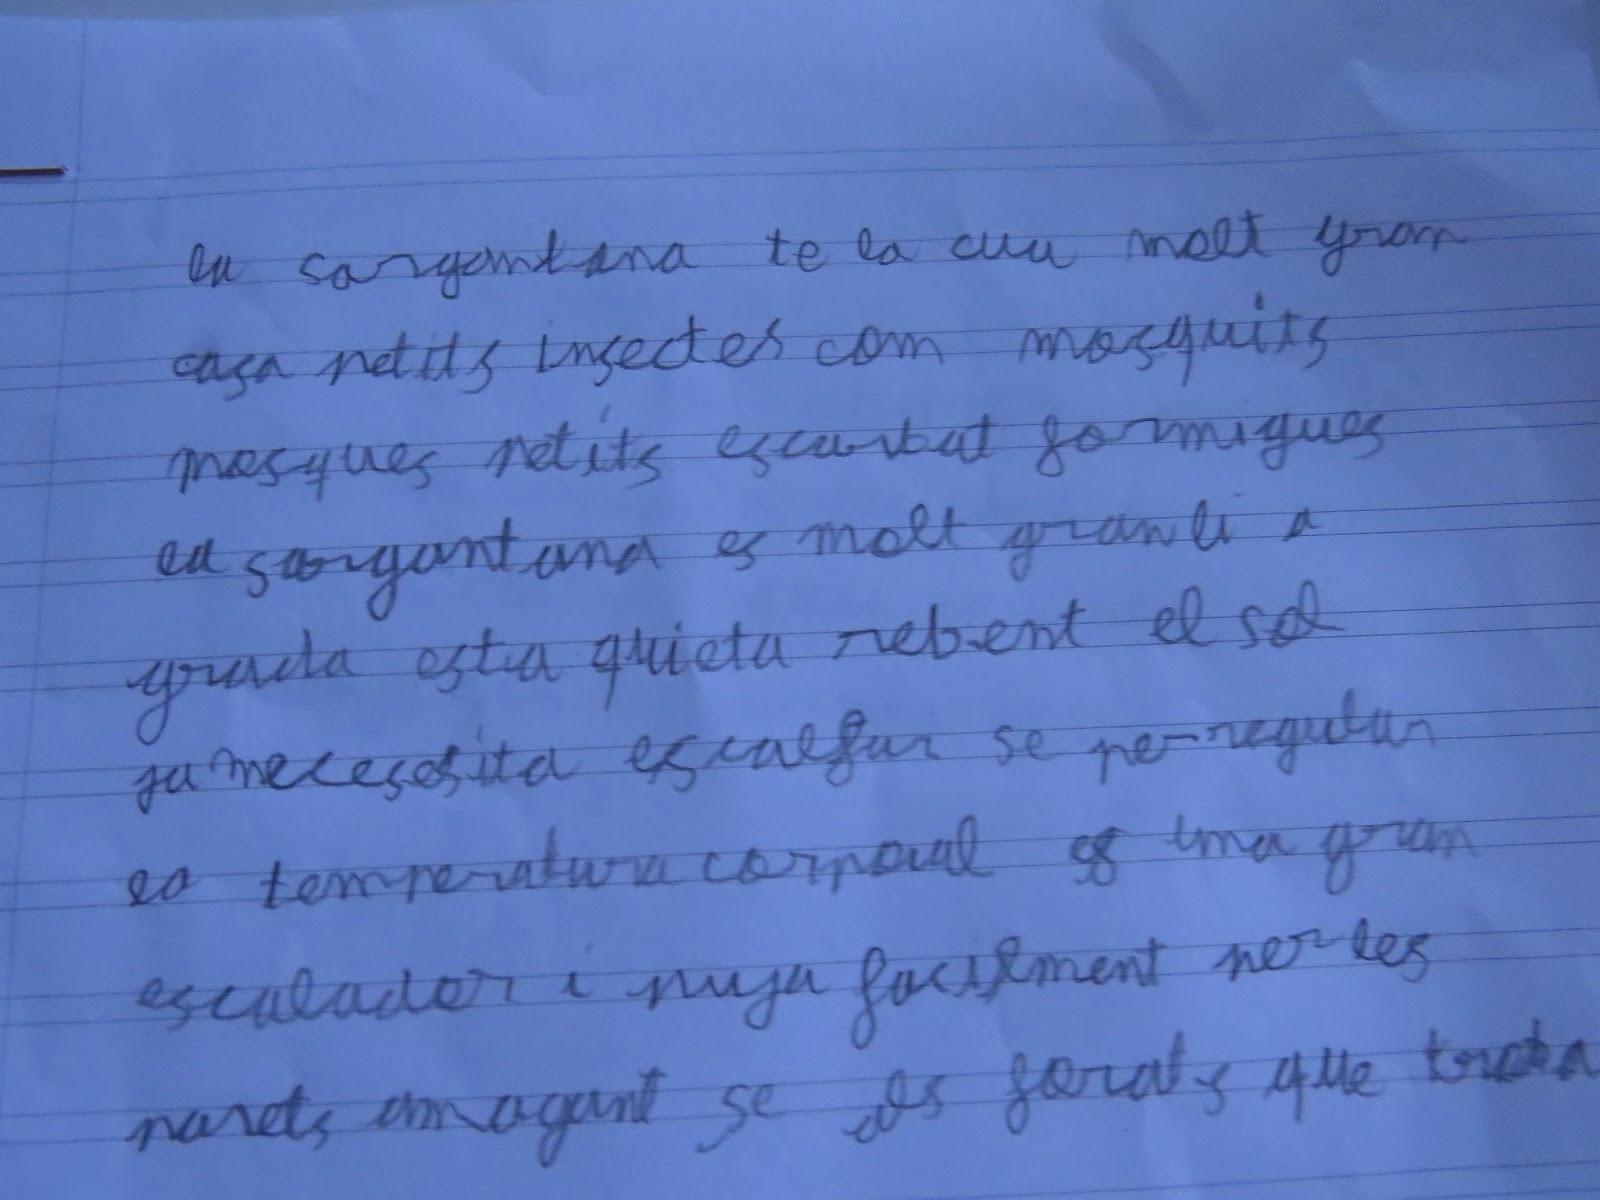 la sargantana te la cua molt gran
caça petits insectes com mosquits
mosques petits escurbat formigues
la sargantana es molt gran li a
grada esta quieta rebent el sol
ja necessita escalfar se per regular
la temperatura corporal es una gran
escalador i puja facilment per les
parets amagant se els forats que troba